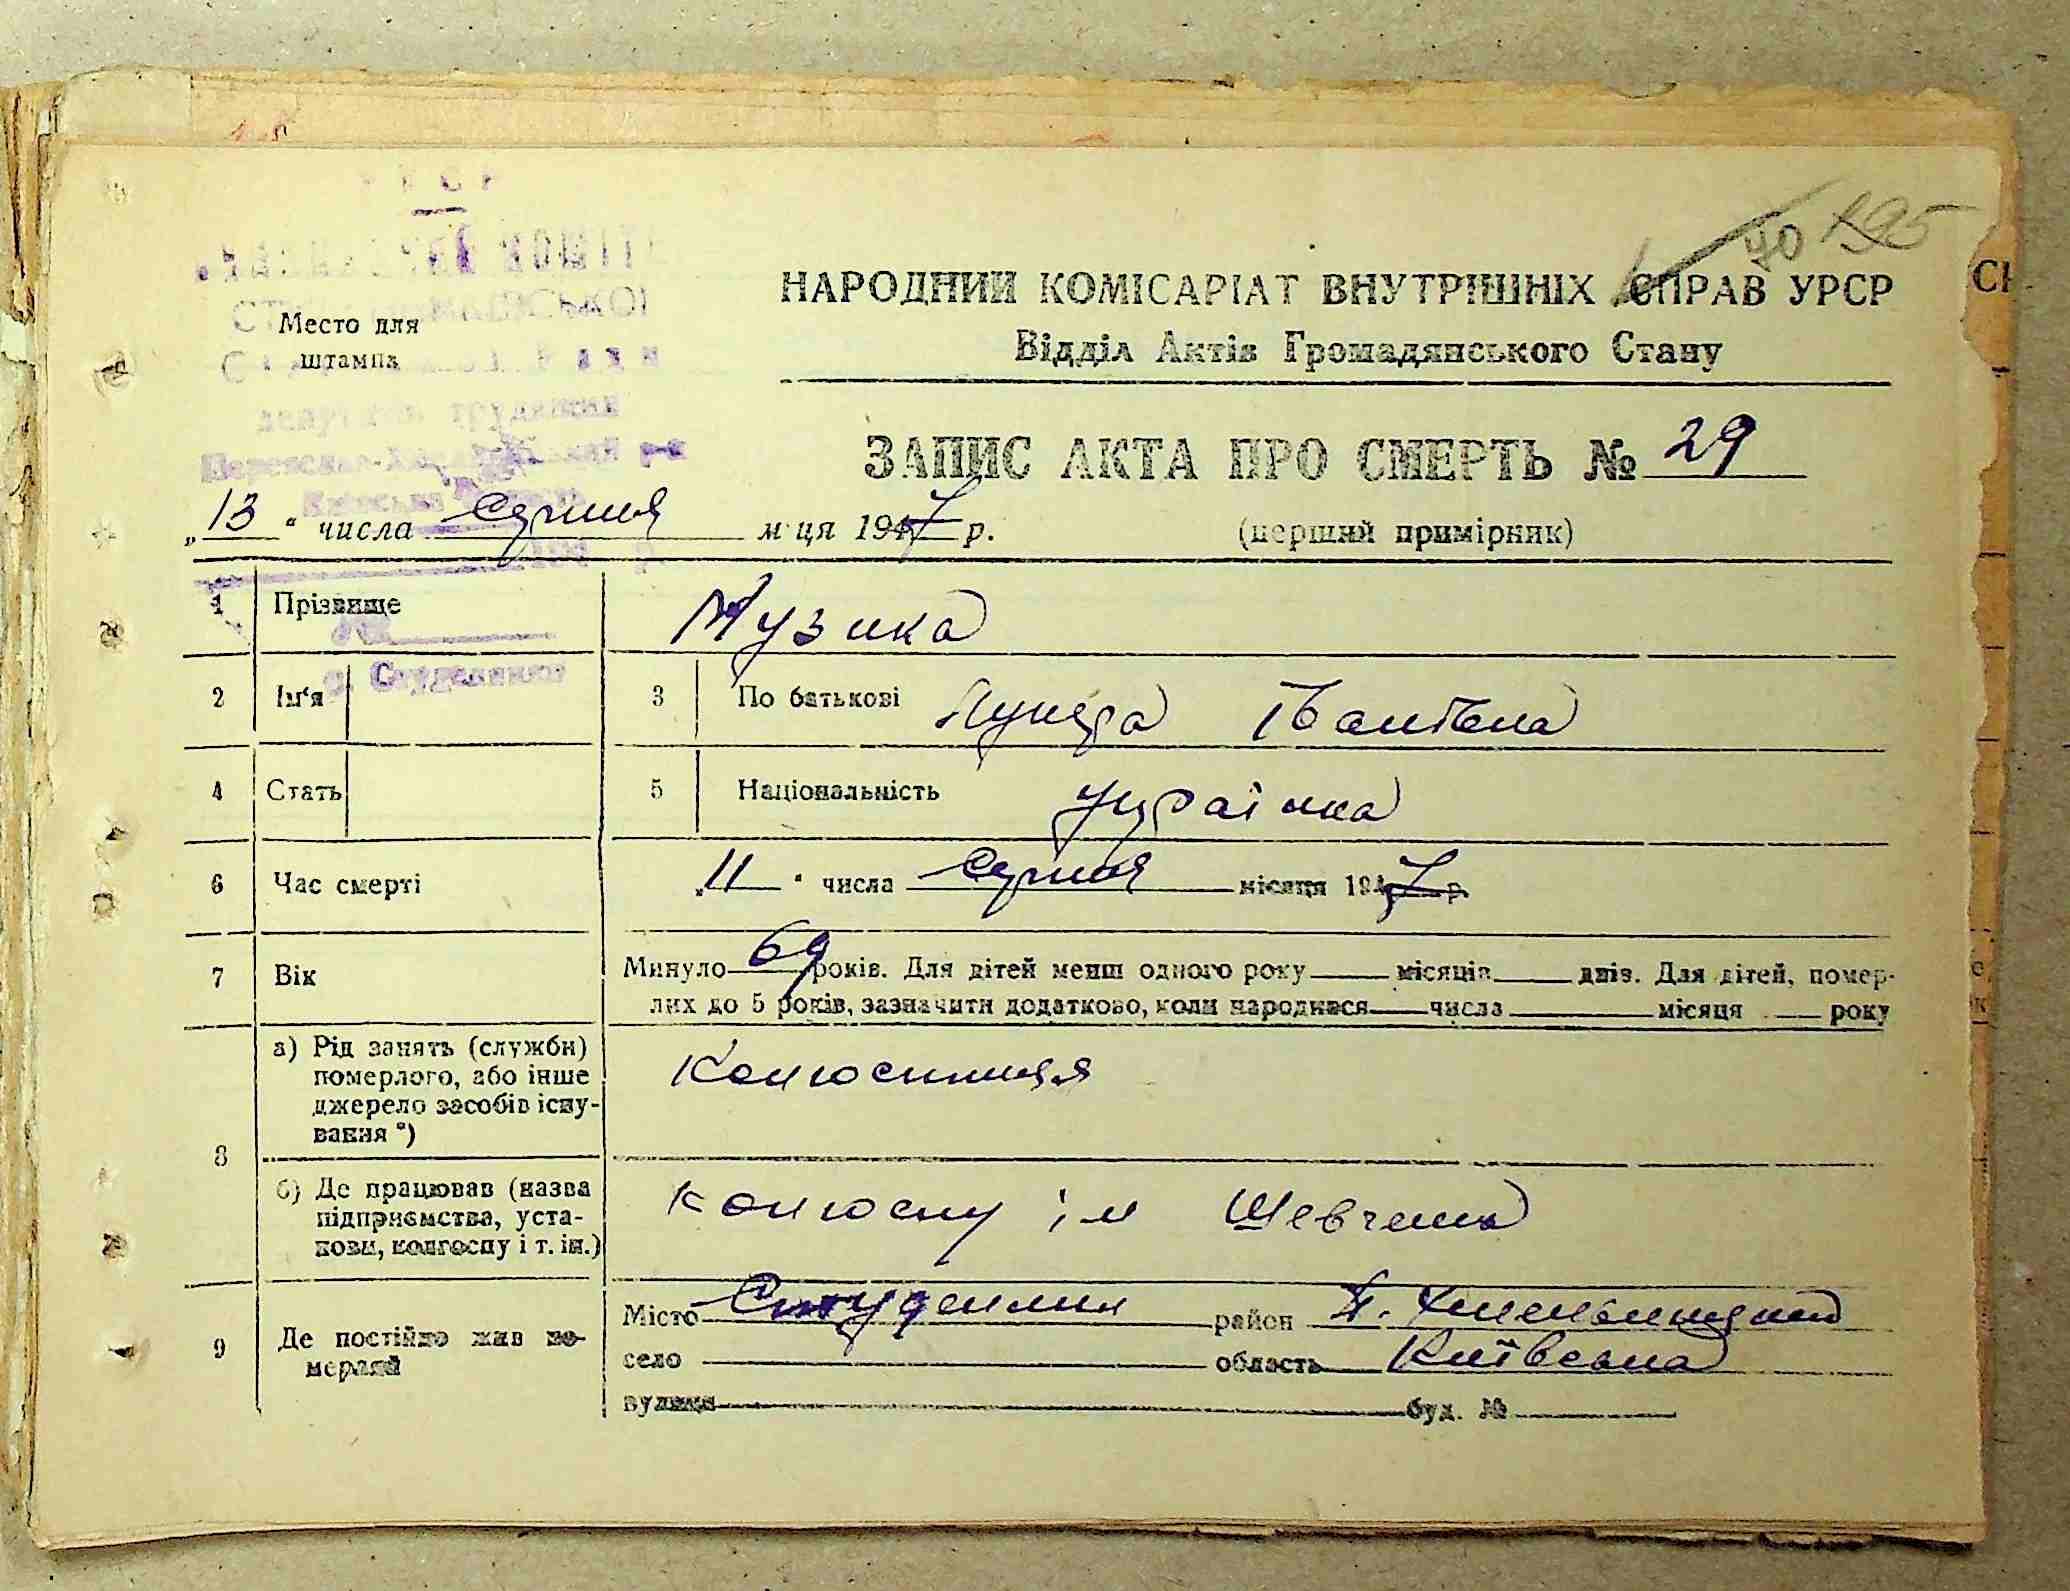 70 195
НАРОДНИЙ КОМІСАРІАТ ВНУТРІШНІХ СПРАВ УРСР
Відділ Актів Громадянського Стану
Место для
штампа
депутатів трудящих
ЗАПИС АКТА ПРО СМЕРТЬ № 29
„13“ числа серпня м-ця 1947 р. (перший примірник)
1 Прізвище Музика
с. Студеники
2 Ім‘я 3 По батькові Іванівна
4 Стать 5 Національність українка
6 Час смерті „11“ числа серпня місяця 1947 р.
7 Вік Минуло 69 років. Для дітей менш одного року місяців днів. Для дітей, помер-
лих до 5 років, зазначити додатково, коли народився числа місяця року
8 а) Рід занять (служби) померлого, або інше джерело засобів існу-вання *) Колгоспниця
б) Де працював (назва підприємства, уста-нови, колгоспу і т. ін.) колгоспу ім Шевченка
9 Де постійно жив по-мерлий Місто Студеники район П. Хмельницький
село область Київська
вулиця буд. №